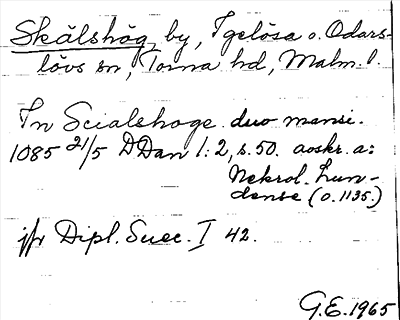 Skälshög, by, Igelösa o. Odars-
lövs sn, Torna hd, Malm. l.
In Scialshoge duo mansi.
1085 21/5 DDan 1:2, s. 50. aoskr. a:
Nekrol. Lun-
dense (o. 1135.)
jfr Dipl. Suec. I 42.
G.E. 1965